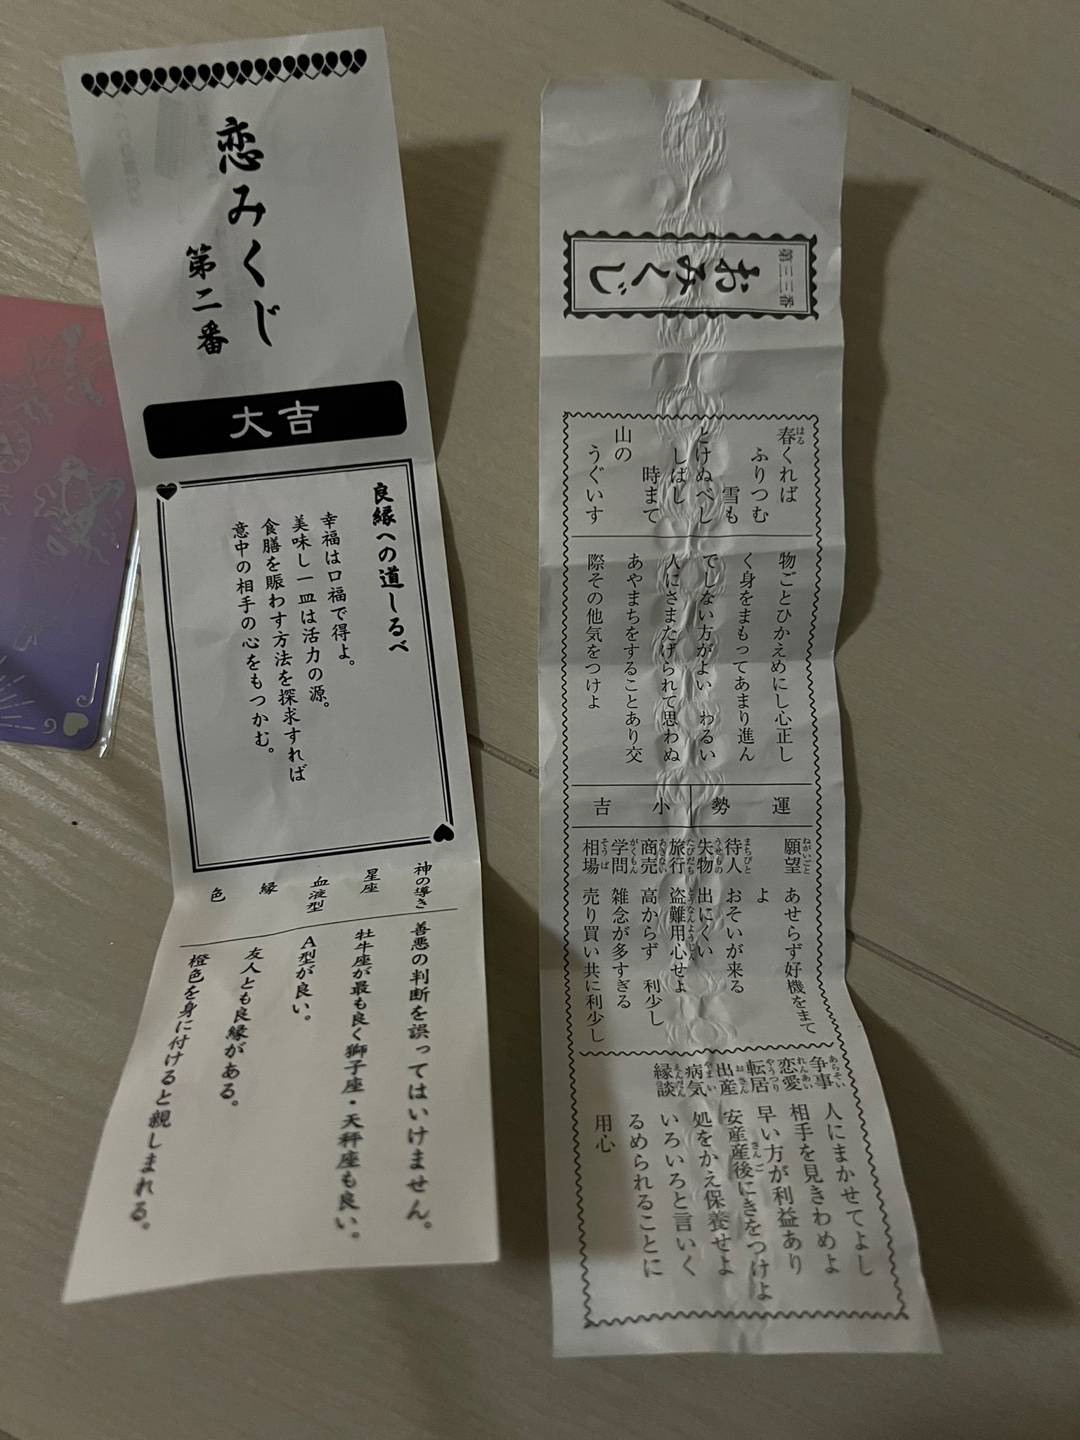 恋みくじ
第二番
大吉
良縁への道しるべ
幸福は口福で得よ。
美味し一皿は活力の源。
食膳を賑わす方法を探求すれば
意中の相手の心をもつかむ。
神の導き 善悪の判断を誤ってはいけません。
星座 牡牛座が最も良く獅子座・天秤座も良い。
血液型 A型が良い。
縁 友人とも良縁がある。
色 橙色を身に付けると親しまれる。
第三三番
おみくじ
春くれば
はる
ふりつむ
雪も
とけぬべし
しばし
時まて
山の
うぐいす
物ごとひかえめにし心正し
く身をまもってあまり進ん
でしない方がよい わるい
人にさまたげられて思わぬ
あやまちをすることあり交
際その他気をつけよ
運勢 小吉
願望 あせらず好機をまて
ねがいごと
よ
待人 おそいが来る
まちびと
失物 出にくい
うせもの
旅行 盗難用心せよ
たびだち とうなんようじん
商売 高からず 利少し
あきない
学問 雑念が多すぎる
がくもん
相場 売り買い共に利少し
そうば
争事 人にまかせてよし
あらそい
恋愛 相手を見きわめよ
れんあい
転居 早い方が利益あり
やうつり
出産 安産産後にきをつけよ
おさん さんご
病気 処をかえ保養せよ
やまい
縁談 いろいろと言いく
えんだん
るめられることに
用心